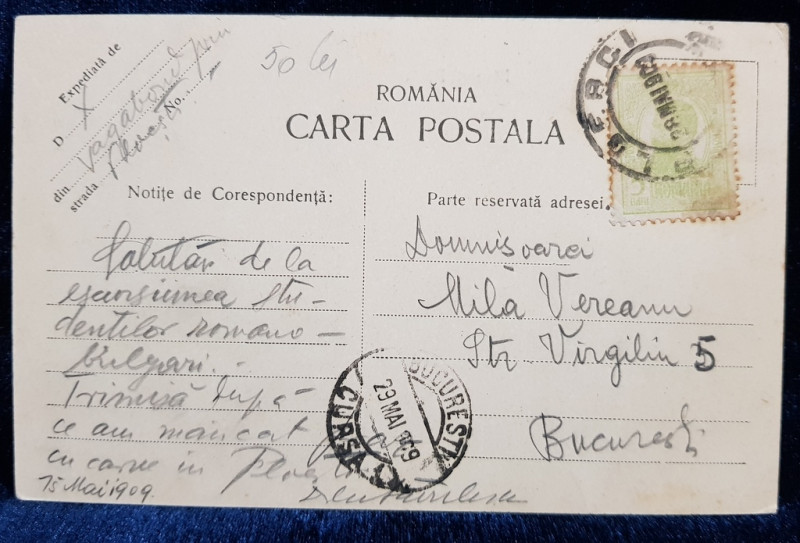 Expediată de
D X
vagabond prin
No.
din
Ploești
strada
50 lei
ROMÂNIA
CARTA POSTALA
Notițe de Corespondență:
Parte reservată adresei.
Salutări de la
escursiunea stu-
denților romano-
bulgari. -
Trimisă după
ce am mâncat
cu carne in Ploești
15 Mai 1909
Domnișoarei
Mila Vereanu
Str Virgiliu 5
București
BUCURESTI
29 MAI 909
CURSA